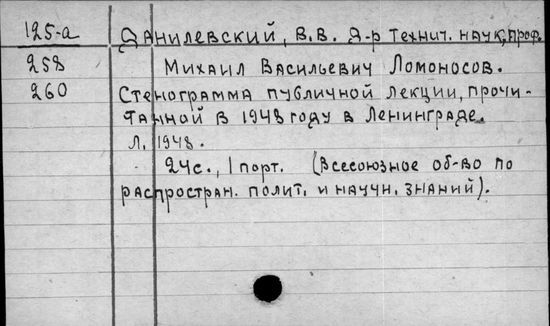 125-а Данилевский, В.В. д-р технич. наук, проф.
258 Михаил Васильевич Ломоносов.
260 Стенограмма публичной лекции, прочи-
танной в 1948 году в Ленинграде.
Л. 1948.
24с., 1 порт. (Всесоюзное об-во по
распростран. полит. и научн. знаний).